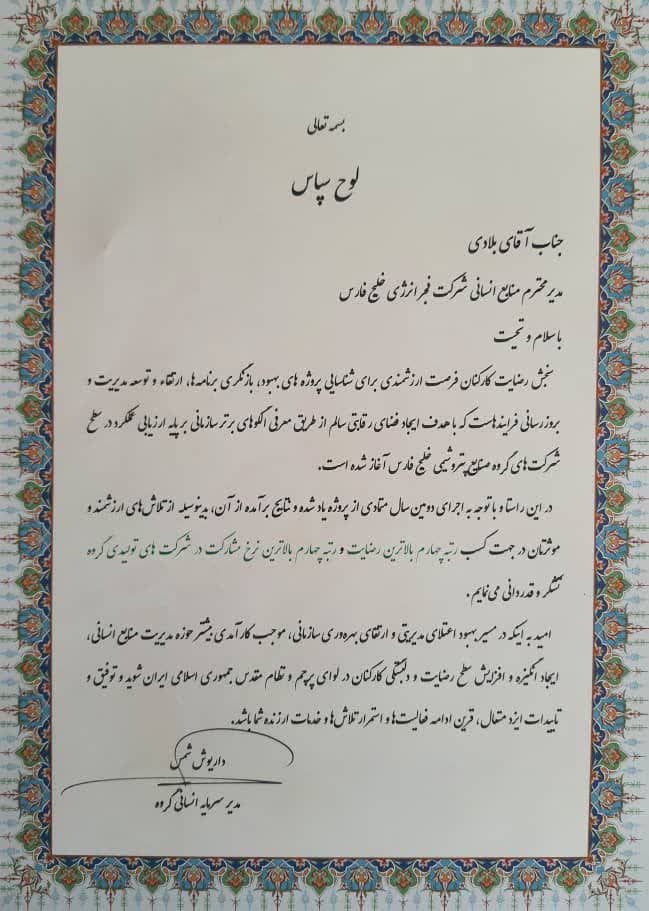 بسمه تعالی
لوح سپاس
جناب آقای بلادی
مدیر محترم منابع انسانی شرکت فجر انرژی خلیج فارس
با سلام و تحیت
سنجش رضایت کارکنان فرصت ارزشمندی برای شناسایی پروژه های بهبود، بازنگری برنامه‌ها، ارتقاء و توسعه مدیریت و
بروزرسانی فرایندهاست که با هدف ایجاد فضای رقابتی سالم از طریق معرفی الگوهای برتر سازمانی بر پایه ارزیابی عملکرد در سطح
شرکت‌های گروه صنایع پتروشیمی خلیج فارس آغاز شده است.
در این راستا و با توجه به اجرای دومین سال متمادی از پروژه یاد شده و نتایج برآمده از آن، بدینوسیله از تلاش‌های ارزشمند و
موثرتان در جهت کسب رتبه چهارم بالاترین رضایت و رتبه چهارم بالاترین نرخ مشارکت در شرکت های تولیدی گروه
تشکر و قدردانی می‌نمایم.
امید به اینکه در مسیر بهبود اعتلای مدیریتی و ارتقای بهره‌وری سازمانی، موجب کارآمدی بیشتر حوزه مدیریت منابع انسانی،
ایجاد انگیزه و افزایش سطح رضایت و دلبستگی کارکنان در لوای پرچم و نظام مقدس جمهوری اسلامی ایران شوید و توفیق و
تاییدات ایزد متعال، قرین ادامه فعالیت‌ها و استمرار تلاش‌ها و خدمات ارزنده شما باشد.
داریوش شمس
مدیر سرمایه انسانی گروه